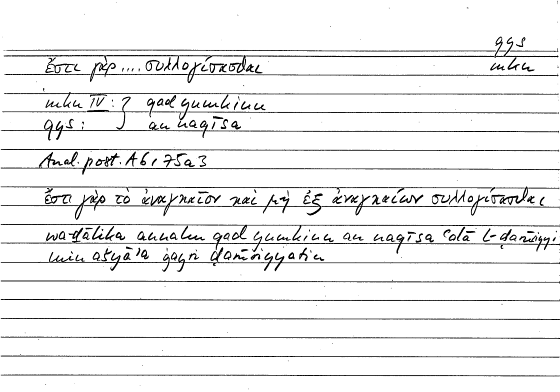 qys
ἔστι γὰρ .... συλλογίσασθαι mkn
mkn IV : } qad yumkinu
qys : } an naqīsa
Anal. post. A 6, 75a3
ἔστι γὰρ τὸ ἀναγκαῖον καὶ μὴ ἐξ ἀναγκαίων συλλογίσασθαι
wa-ḏālika annahu qad yumkinu an naqīsa ʿalā l-ḍarūriyyi
min ašyāʾa ġayri ḍarūriyyatin